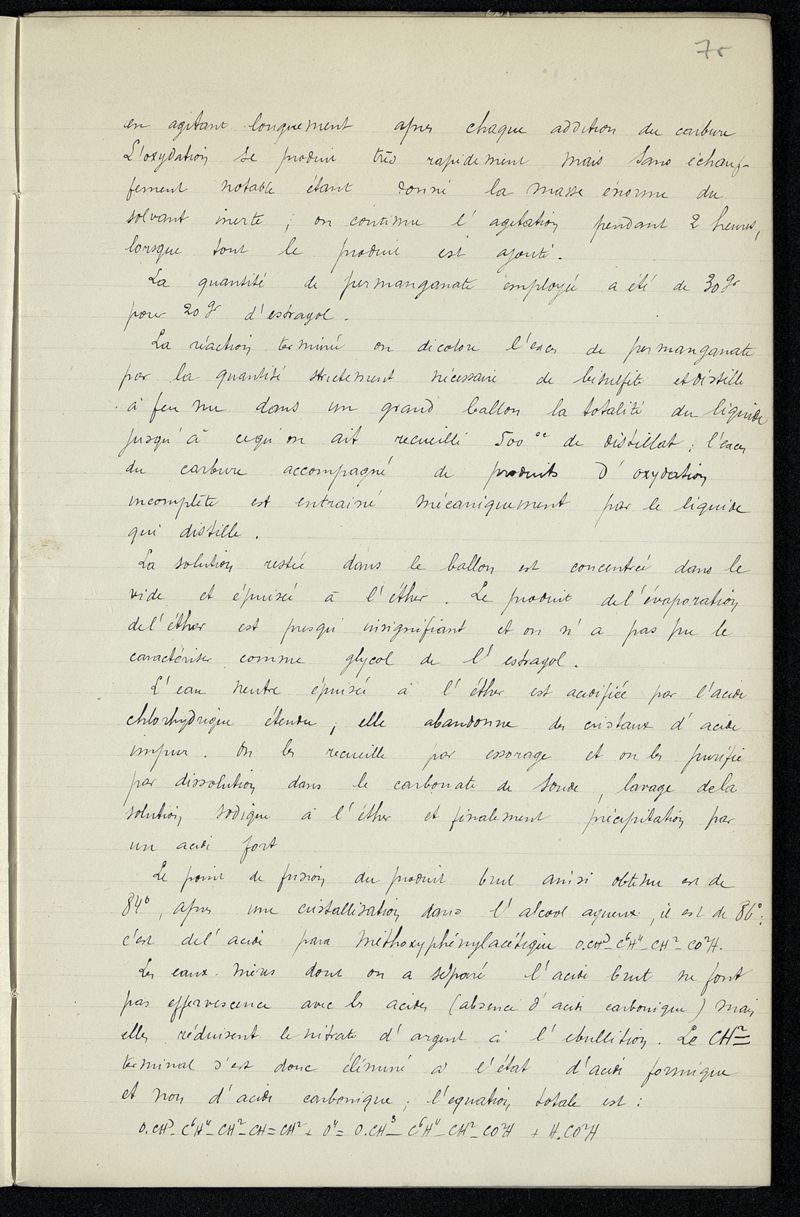 75
en agitant longuement apres chaque addition du carbure
L'oxydation se produit très rapidement mais sans échauf-
fement notable étant donné la masse énorme du
solvant inerte ; on continue l'agitation pendant 2 heures,
lorsque tout le produit est ajouté.
La quantité de permanganate employée a été de 30 gr
pour 20 gr d'estragol.
La réaction terminée on décolore l'exces de permanganate
par la quantité strictement nécessaire de bisulfite et distille
à feu nu dans un grand ballon la totalité du liquide
jusqu'à ce qu'on ait recueilli 500 cc de distillat ; l'exces
du carbure accompagné de produits d'oxydation
incomplète est entrainé mécaniquement par le liquide
qui distille.
La solution restée dans le ballon est concentrée dans le
vide et épuisée à l'éther. Le produit de l'évaporation
de l'éther est presqu'insignifiant et on n'a pas pu le
caractériser comme glycol de l'estragol.
L'eau neutre épuisée à l'éther est acidifiée par l'acide
chlorhydrique étendu, elle abandonne des cristaux d'acide
impur. On les recueille par essorage et on les purifie
par dissolution dans le carbonate de soude, lavage de la
solution sodique à l'éther et finalement précipitation par
un acide fort
Le point de fusion du produit brut ainsi obtenu est de
84°, apres une cristallisation dans l'alcool aqueux, il est de 86° :
c'est de l'acide para méthoxyphénylacétique O.CH³-C⁶H⁴-CH²-CO²H.
Les eaux-mères dont on a séparé l'acide brut ne font
pas effervescence avec les acides (absence d'acide carbonique) mais
elles réduisent le nitrate d'argent à l'ebullition. Le CH²=
terminal s'est donc éliminé à l'état d'acide formique
et non d'acide carbonique ; l'equation totale est :
O.CH³-C⁶H⁴-CH²-CH=CH² + O⁴ = O.CH³-C⁶H⁴-CH²-CO²H + H.CO²H